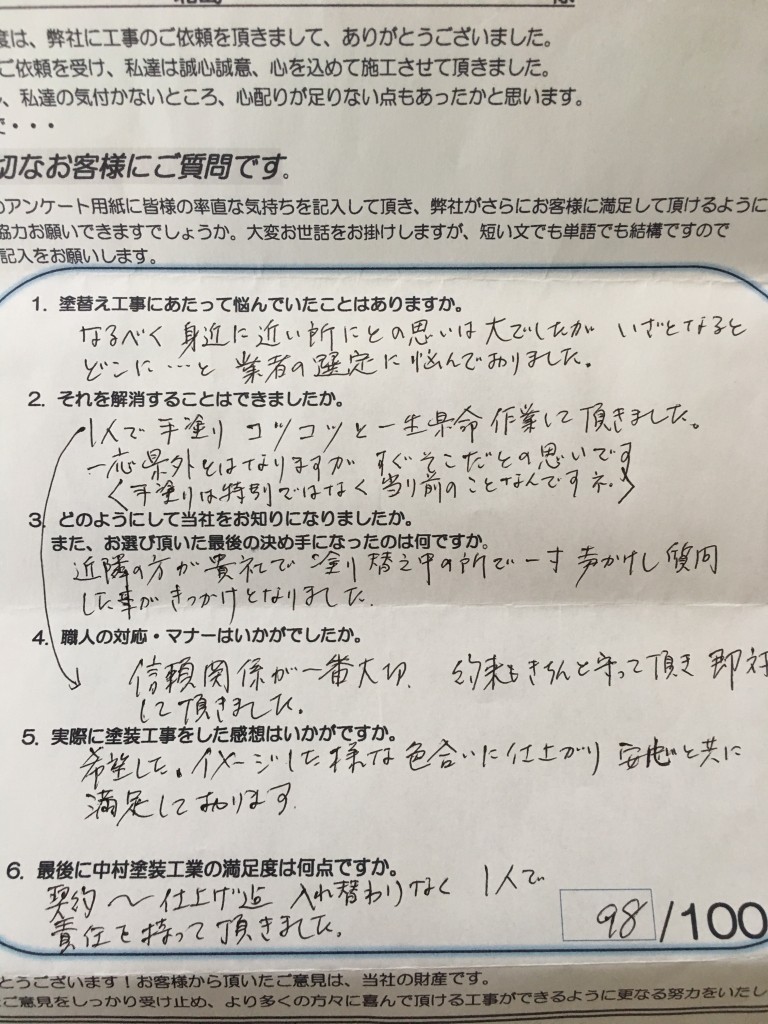 度は、弊社に工事のご依頼を頂きまして、ありがとうございました。
ご依頼を受け、私達は誠心誠意、心を込めて施工させて頂きました。
、私達の気付かないところ、心配りが足りない点もあったかと思います。
で・・・
切なお客様にご質問です。
のアンケート用紙に皆様の率直な気持ちを記入して頂き、弊社がさらにお客様に満足して頂けるように
協力お願いできますでしょうか。大変お世話をお掛けしますが、短い文でも単語でも結構ですので
記入をお願いします。
1. 塗替え工事にあたって悩んでいたことはありますか。
なるべく 身近に近い所にとの思いは大でしたが いざとなると
どこに…と 業者の選定に悩んでおりました。
2. それを解消することはできましたか。
1人で 手塗り コツコツと一生県命 作業して頂きました。
一応県外とはなりますが すぐそこだとの思いです
〈手塗りは特別ではなく 当り前のことなんですネ。〉
3. どのようにして当社をお知りになりましたか。
また、お選び頂いた最後の決め手になったのは何ですか。
近隣の方が貴社で 塗り替え中の所で一寸 声かけし質問
した事がきっかけとなりました。
4. 職人の対応・マナーはいかがでしたか。
信頼関係が一番大切、約束もきちんと守って頂き 即対
して頂きました。
5. 実際に塗装工事をした感想はいかがですか。
希望した、イメージした様な色合いに仕上がり 安心と共に
満足しております。
6. 最後に中村塗装工業の満足度は何点ですか。
契約〜仕上げ迄 入れ替わりなく 1人で
責任を持って頂きました。
98/100
とうございます！お客様から頂いたご意見は、当社の財産です。
ご意見をしっかり受け止め、より多くの方々に喜んで頂ける工事ができるように更なる努力をいたし